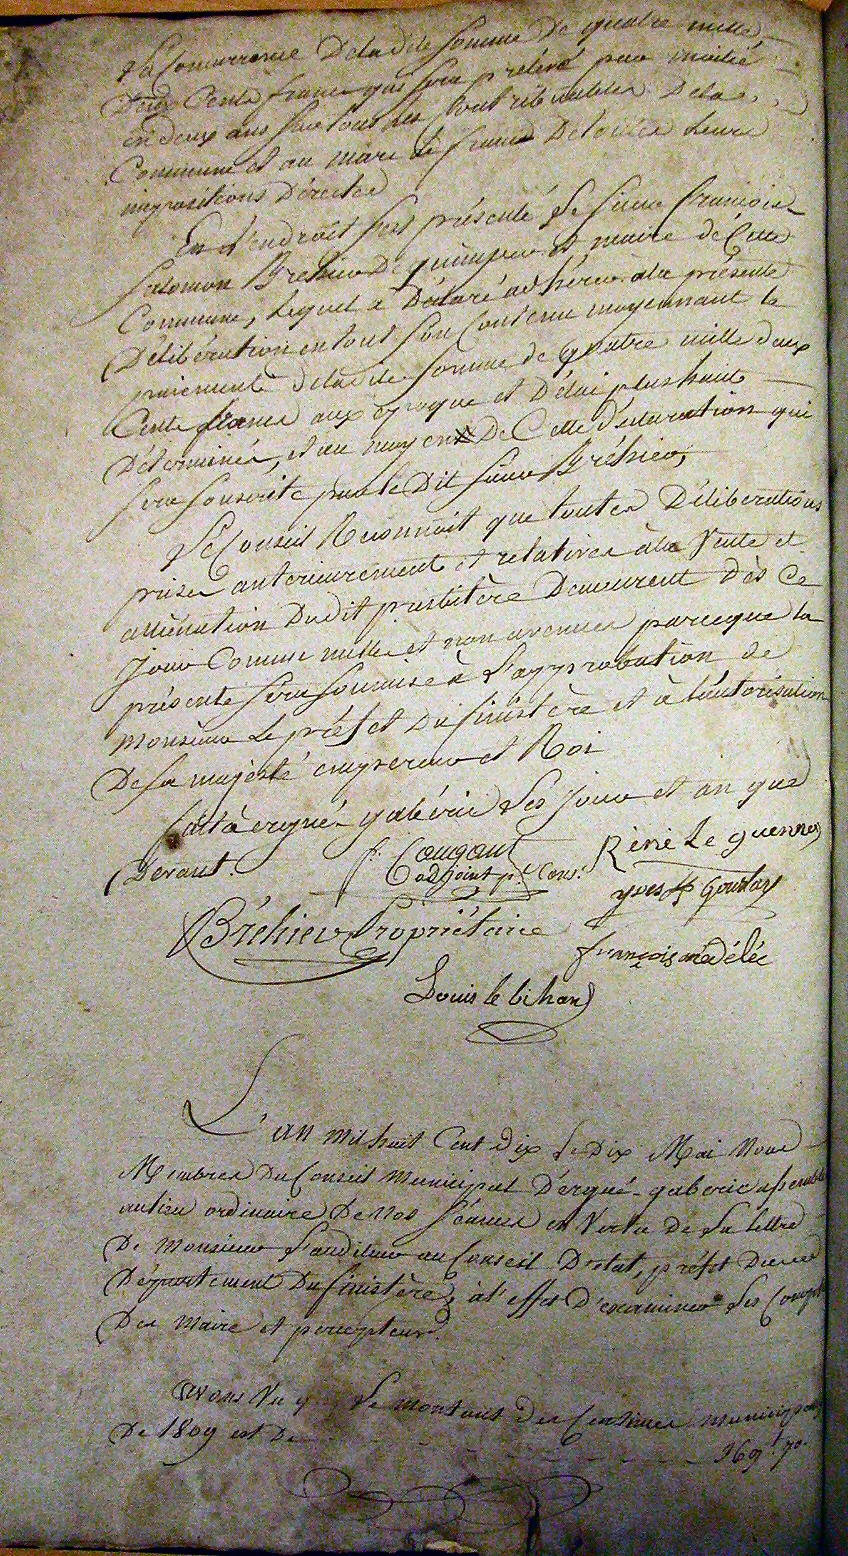 la Concurrence De la dite somme De quatre mille
Deux Cents francs qui sera prélevé par moitié
en deux ans sur tous les Contribuables De la
Commune et au marc le franc De toutes leurs
impositions Directes
En l'endroit s'est présenté le sieur françois
Salomon Bréhier De quimper et maire de Cette
Commune, lequel a Déclaré adhérer à la présente
Délibération en tout son Contenu moyennant le
paiement de la dite somme de quatre mille deux
Cents francs aux époque et Délai plus haut
Déterminés, et au moyen De Cette déclaration qui
sera souscrite par le Dit sieur Bréhier,
Le Conseil Reconnoit que toutes Délibérations
prises antérieurement et relatives à la Vente et
alliénation Du dit presbitère Demeurent dès Ce
jour Comme nulles et non avenues parceque la
présente sera soumise à L'approbation de
monsieur Le préfet Du finistère et à l'autorisation
De sa majesté empereur et Roi
fait à ergué-gabéric Les jour et an que
Devant.
Cougant
adjoint pt Cons.
René Le guennec
yves Gourlay
Bréhier Propriétaire
françois nédélec
Louis le bihan
L'an mil huit Cent dix Le Dix Mai Nous
Membres Du Conseil Municipal D'ergué-gaberic assemblé
au lieu ordinaire De Nos séances en Vertu de La lettre
De Monsieur L'auditeur au Conseil D'état, préfet Du
Département Du finistère, à l'effet D'examiner Les Comptes
Des Maire et percepteur.
avons Vu que Le montant des Centimes municipaux
De 1809 est De - - - - - - - 169f. 70.